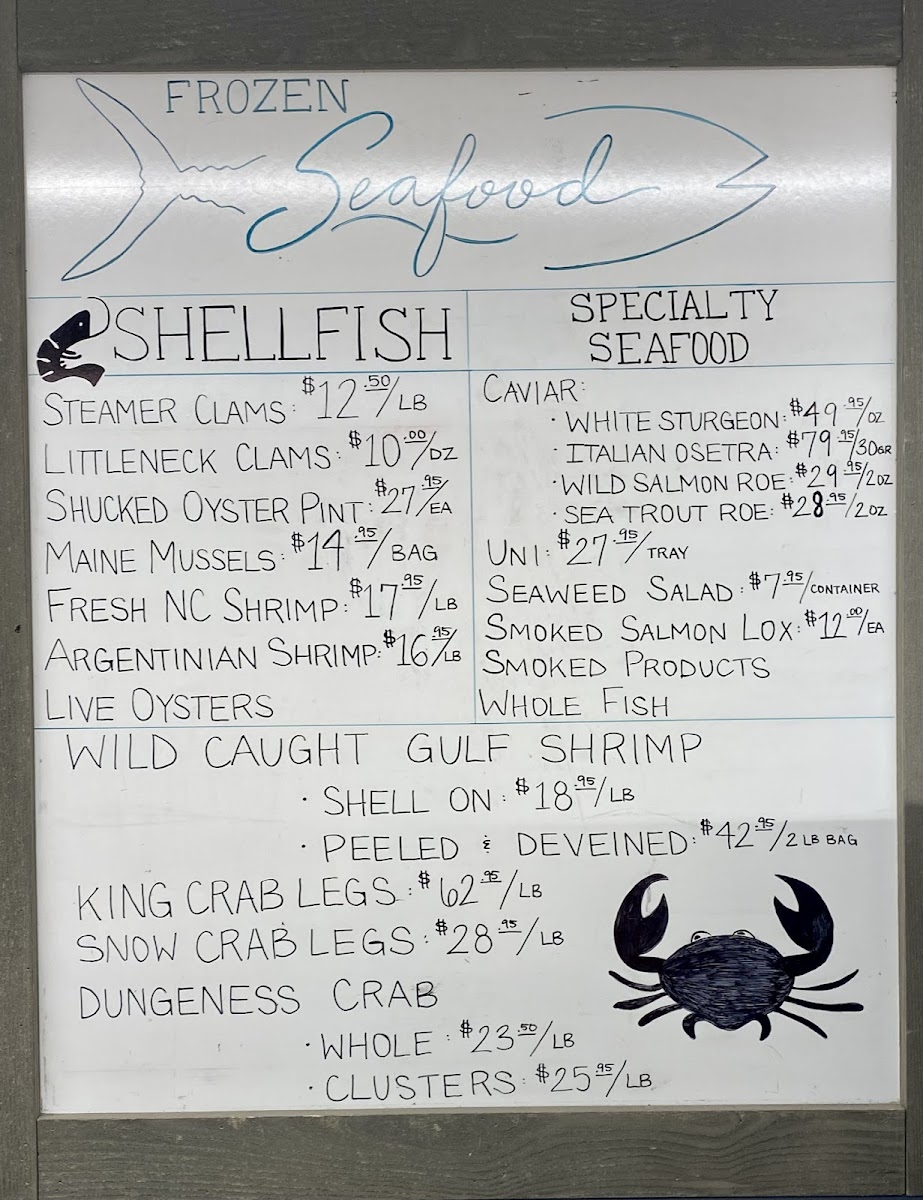 FROZEN
Seafood
SHELLFISH
STEAMER CLAMS: $12.50/LB
LITTLENECK CLAMS: $10.00/DZ
SHUCKED OYSTER PINT: $27.95/EA
MAINE MUSSELS: $14.95/BAG
FRESH NC SHRIMP: $17.95/LB
ARGENTINIAN SHRIMP: $16.95/LB
LIVE OYSTERS
SPECIALTY
SEAFOOD
CAVIAR:
· WHITE STURGEON: $49.95/OZ
· ITALIAN OSETRA: $79.95/30GR
· WILD SALMON ROE: $29.95/2OZ
· SEA TROUT ROE: $28.95/2OZ
UNI: $27.95/TRAY
SEAWEED SALAD: $7.95/CONTAINER
SMOKED SALMON LOX: $12.00/EA
SMOKED PRODUCTS
WHOLE FISH
WILD CAUGHT GULF SHRIMP
· SHELL ON: $18.95/LB
· PEELED & DEVEINED: $42.95/2 LB BAG
KING CRAB LEGS: $62.95/LB
SNOW CRAB LEGS: $28.95/LB
DUNGENESS CRAB
· WHOLE: $23.50/LB
· CLUSTERS: $25.95/LB